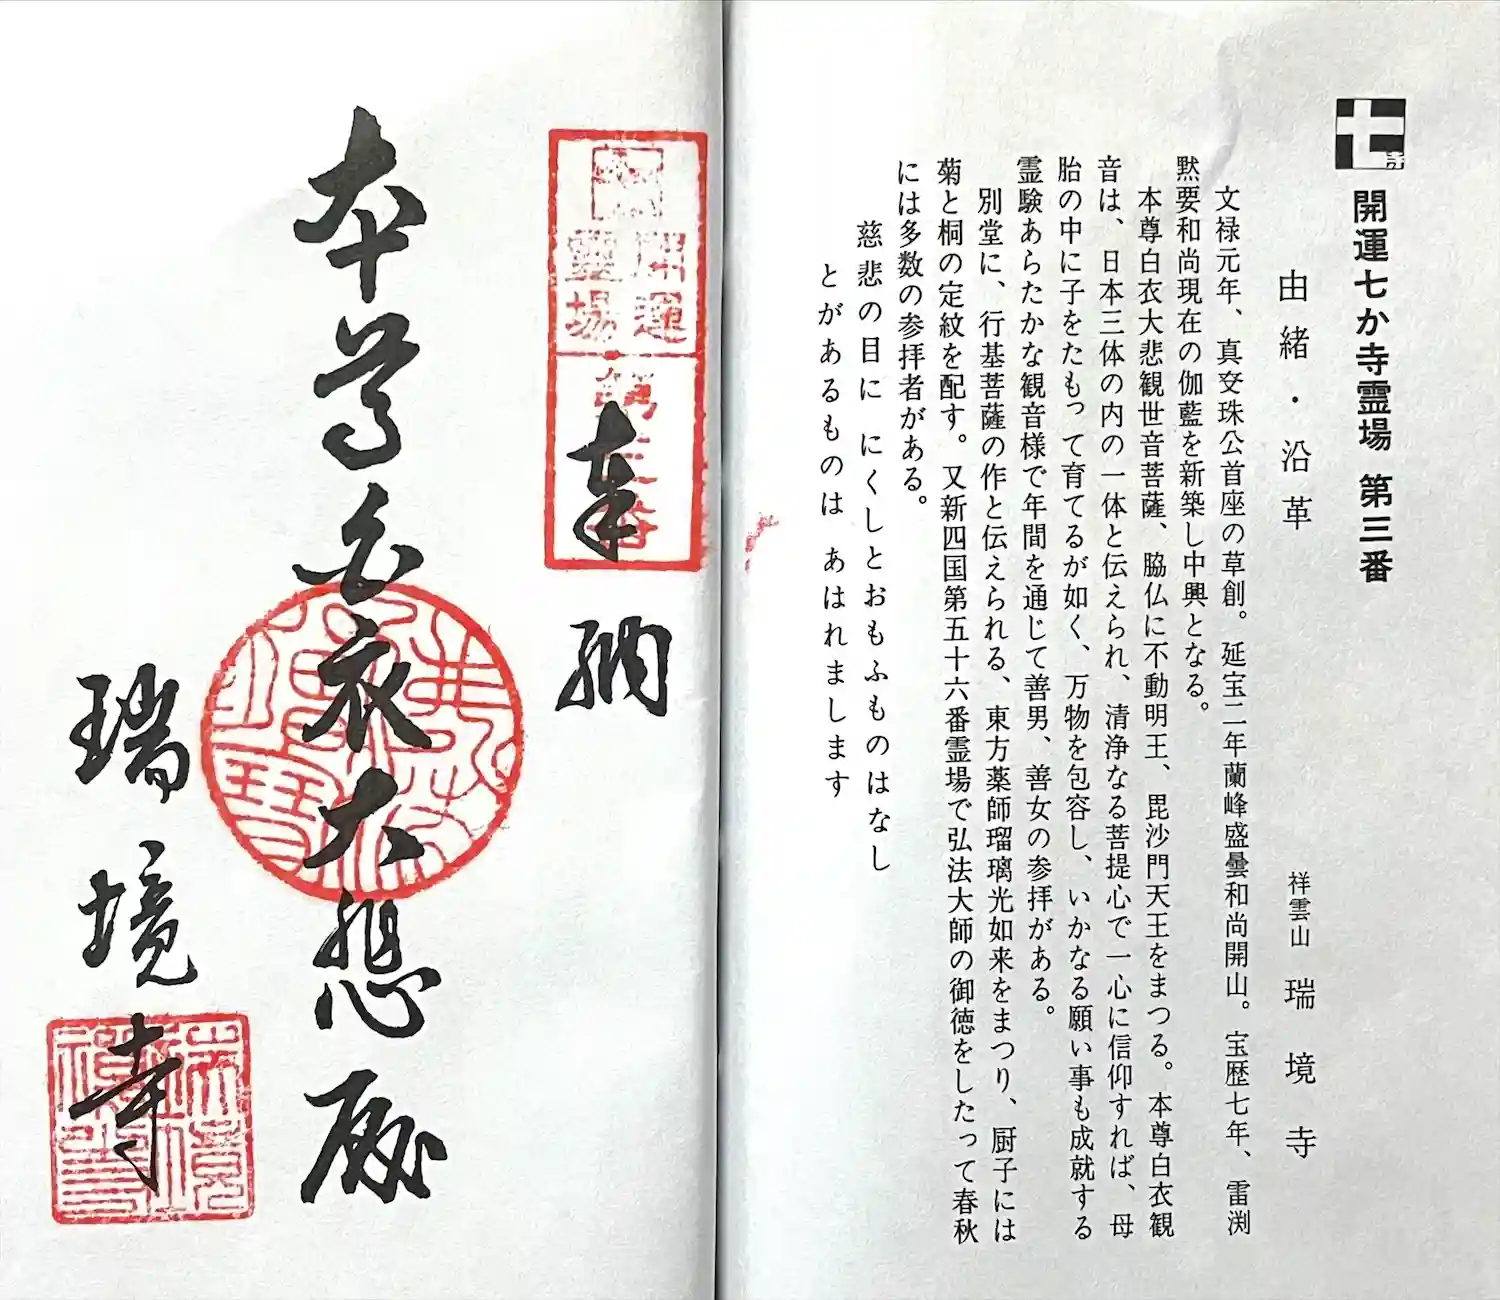 開運七か寺霊場 第三番
由緒・沿革
祥雲山 瑞境寺
文禄元年、真芠珠公首座の草創。延宝二年蘭峰盛曇和尚開山。宝歴七年、雷渕
黙要和尚現在の伽藍を新築し中興となる。
本尊白衣大悲観世音菩薩、脇仏に不動明王、毘沙門天王をまつる。本尊白衣観
音は、日本三体の内の一体と伝えられ、清浄なる菩提心で一心に信仰すれば、母
胎の中に子をたもって育てるが如く、万物を包容し、いかなる願い事も成就する
霊験あらたかな観音様で年間を通じて善男、善女の参拝がある。
別堂に、行基菩薩の作と伝えられる、東方薬師瑠璃光如来をまつり、厨子には
菊と桐の定紋を配す。又新四国第五十六番霊場で弘法大師の御徳をしたって春秋
には多数の参拝者がある。
慈悲の目に にくしとおもふものはなし
とがあるものは あはれまします
開運
霊場
第三番
奉納
本尊白衣大悲殿
瑞境寺